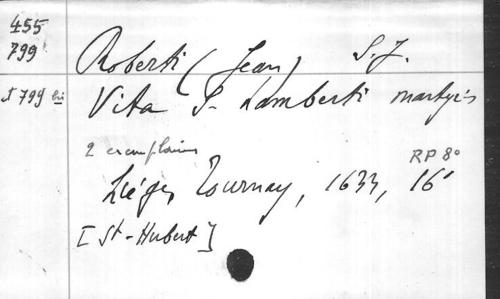 455
799
et 799 bis
Roberti (Jean) S.J.
Vita S. Lamberti martyris
2 exemplaires
RP 8°
Liége, Tournay, 1633, 16°
[St-Hubert]